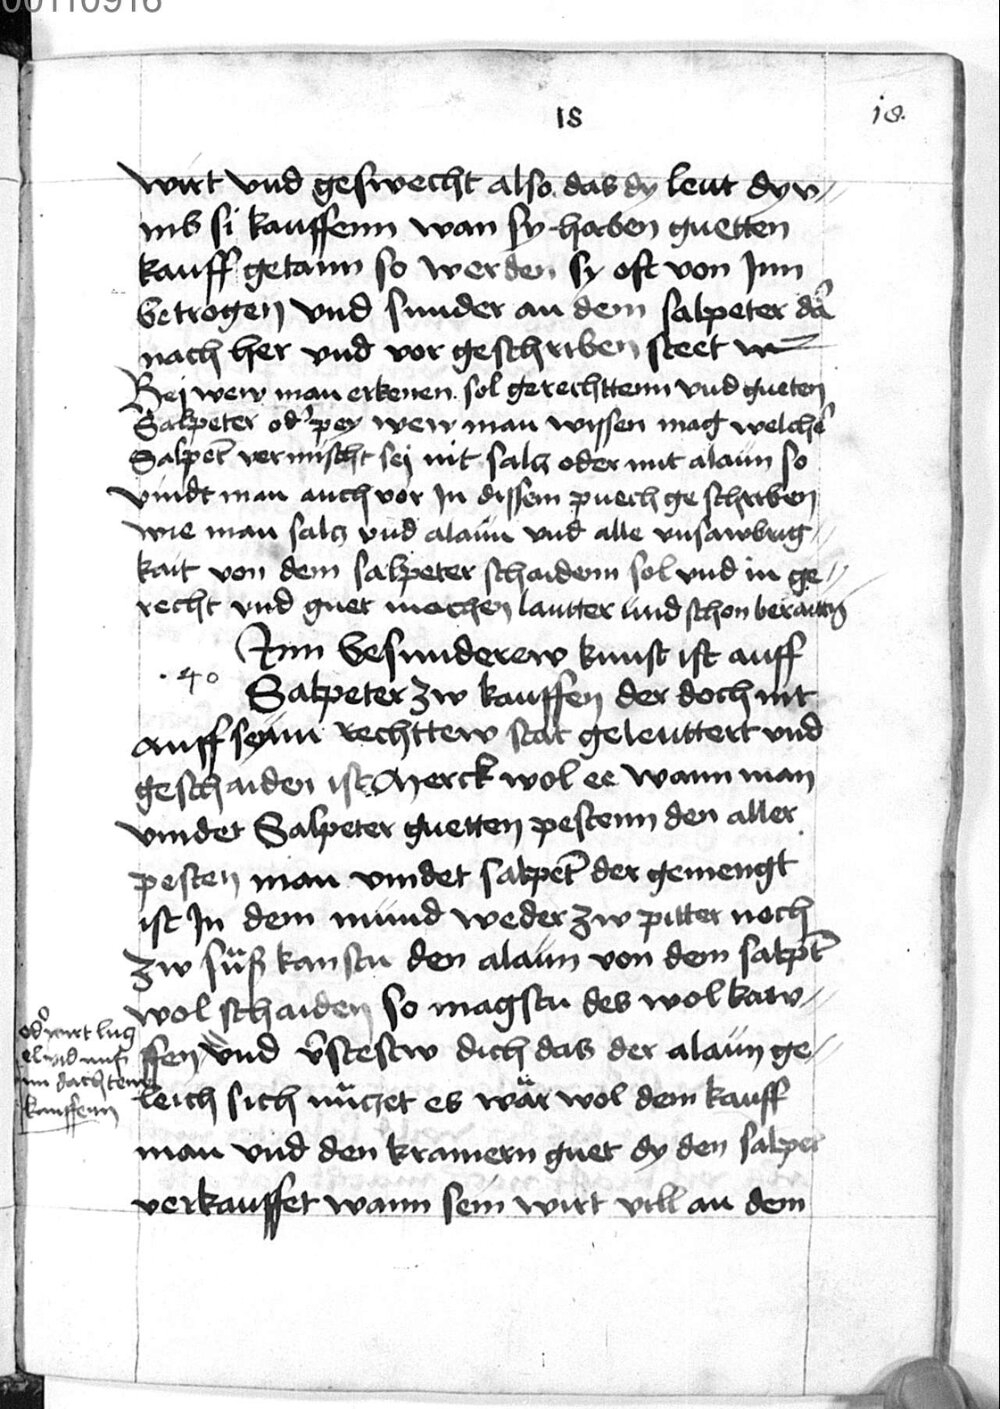 00110916
18
18.
wirt vnd geswecht also das dy leut dyv
mb si kauffenn wan sy haben guetten
kauff getann so werden sy oft von Inn
betrogen vnd sunder an dem salpeter
nach her vnd vor geschriben steet
Bej wew man erkenen sol gerechttenn vnd gueten
Salpeter od' pey wew man wissen mag welcher
Salpet' vermischt sej mit salcz oder mit alaün so
vindt man auch vor In dissem puech geschriben
wie man salcz vnd alaün vnd alle vnsawbrig
kait von dem salpeter schaidenn sol vnd in ge
recht vnd guet machen lautter vnd schon
Ainn besunderew kunst ist auff
.40
Salpeter zw kauffen der doch nit
auff seynn rechttew stat geleuttert vnd
geschaiden ist Merck wol ee wann man
vindet Salpeter guetten pestenn den aller
pesten man vindet salpet' der gemengt
ist In dem mund weder zw pitter noch
zw süß kanstu den alaün von dem salpet'
wol schaiden so magstu des wol kaw
ffen vnd v'stestw dich das der alaün ge
leich sich müchet es wär wol dem kauff
man vnd den kramern guet dy den salpet
verkauffet wann sein wirt vill an dem
od' wirt lug
kauffenn